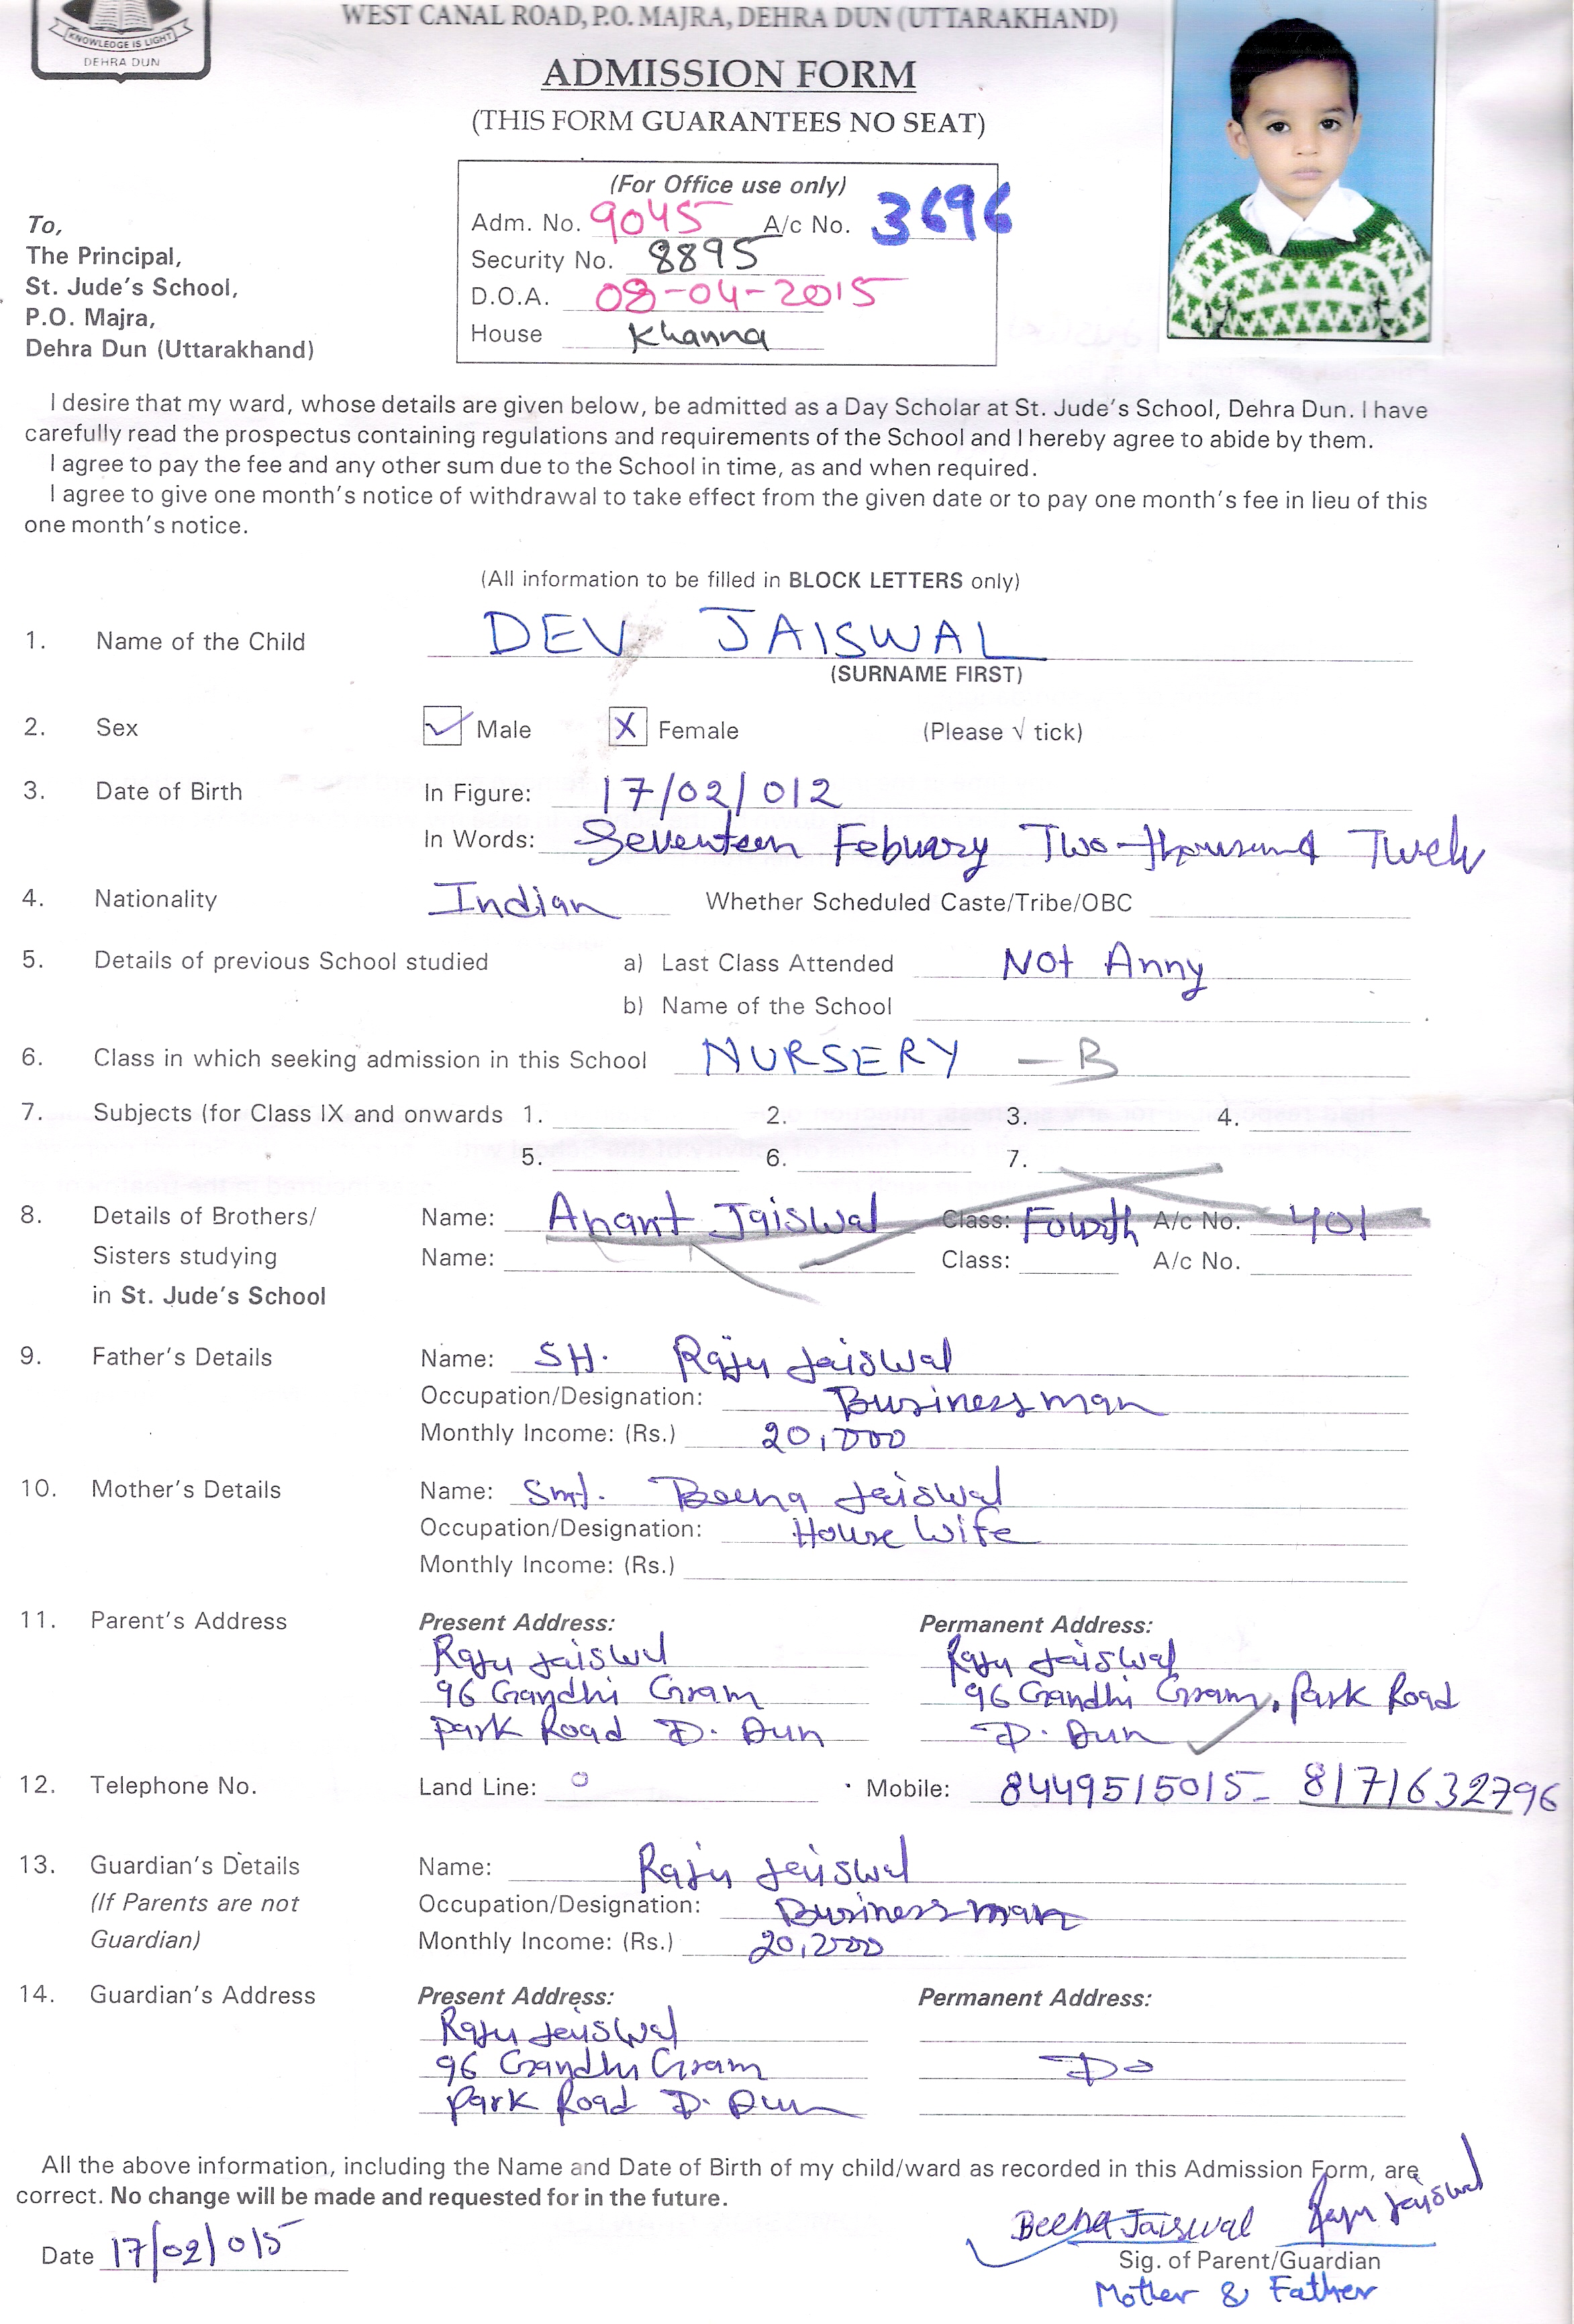 KNOWLEDGE IS LIGHT
DEHRA DUN
WEST CANAL ROAD, P.O. MAJRA, DEHRA DUN (UTTARAKHAND)
ADMISSION FORM
(THIS FORM GUARANTEES NO SEAT)
(For Office use only)
Adm. No. 9045 A/c No. 3696
Security No. 8895
D.O.A. 08-04-2015
House Khanna
To,
The Principal,
St. Jude's School,
P.O. Majra,
Dehra Dun (Uttarakhand)
I desire that my ward, whose details are given below, be admitted as a Day Scholar at St. Jude's School, Dehra Dun. I have
carefully read the prospectus containing regulations and requirements of the School and I hereby agree to abide by them.
I agree to pay the fee and any other sum due to the School in time, as and when required.
I agree to give one month's notice of withdrawal to take effect from the given date or to pay one month's fee in lieu of this
one month's notice.
(All information to be filled in BLOCK LETTERS only)
1. Name of the Child DEV JAISWAL
(SURNAME FIRST)
2. Sex ✓ Male X Female (Please √ tick)
3. Date of Birth In Figure: 17/02/012
In Words: Seventeen Febuary Two-thousand Twelv
4. Nationality Indian Whether Scheduled Caste/Tribe/OBC
5. Details of previous School studied a) Last Class Attended Not Anny
b) Name of the School
6. Class in which seeking admission in this School NURSERY - B
7. Subjects (for Class IX and onwards 1. 2. 3. 4.
5. 6. 7.
8. Details of Brothers/ Name: Anant Jaiswal Class: Fourth A/c No. 401
Sisters studying Name: Class: A/c No.
in St. Jude's School
9. Father's Details Name: SH. Raju Jaiswal
Occupation/Designation: Businessman
Monthly Income: (Rs.) 20,000
10. Mother's Details Name: Smt. Beena Jaiswal
Occupation/Designation: House Wife
Monthly Income: (Rs.)
11. Parent's Address Present Address: Permanent Address:
Raju Jaiswal Raju Jaiswal
96 Gandhi Gram 96 Gandhi Gram, Park Road
Park Road D. Dun D. Dun
12. Telephone No. Land Line: Mobile: 8449515015- 8171632796
13. Guardian's Details Name: Raju Jaiswal
(If Parents are not Occupation/Designation: Businessman
Guardian) Monthly Income: (Rs.)
14. Guardian's Address Present Address: Permanent Address:
Raju Jaiswal
96 Gandhi Gram Do
Park Road D. Dun
All the above information, including the Name and Date of Birth of my child/ward as recorded in this Admission Form, are
correct. No change will be made and requested for in the future.
Beena Jaiswal Raju Jaiswal
Date 17/02/015 Sig. of Parent/Guardian
Mother & Father